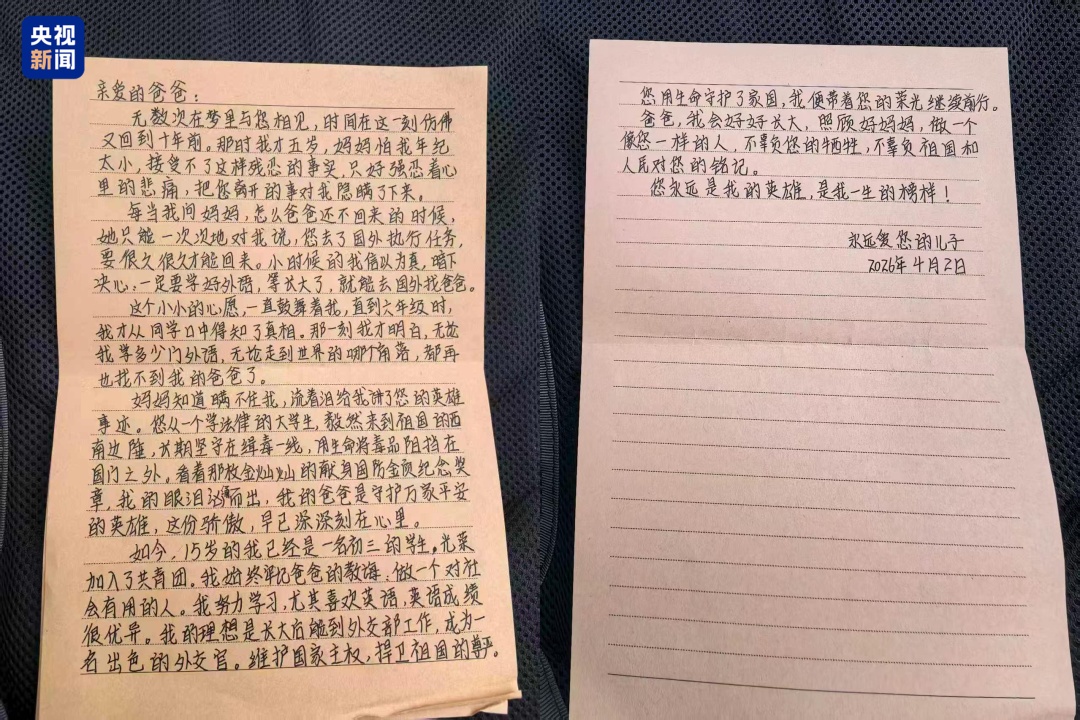 央视
新闻
亲爱的爸爸：
无数次在梦里与您相见，时间在这一刻仿佛
又回到十年前。那时我才五岁，妈妈怕我年纪
太小，接受不了这样残忍的事实，只好强忍着心
里的悲痛，把您离开的事对我隐瞒了下来。
每当我问妈妈，怎么爸爸还不回来的时候，
她只能一次次地对我说，您去了国外执行任务，
要很久很久才能回来。小时候的我信以为真，暗下
决心：一定要学好外语，等长大了，就能去国外找爸爸。
这个小小的心愿，一直鼓舞着我，直到六年级时，
我才从同学口中得知了真相。那一刻我才明白，无论
我学多少门外语，无论走到世界的哪个角落，都再
也找不到我的爸爸了。
妈妈知道瞒不住我，流着泪给我讲了您的英雄
事迹。您从一个学法律的大学生，毅然来到祖国的西
南边陲，长期坚守在缉毒一线，用生命将毒品阻挡在
国门之外。看着那枚金灿灿的献身国防金质纪念奖
章，我的眼泪汹涌而出，我的爸爸是守护万家平安
的英雄，这份骄傲，早已深深刻在心里。
如今，15岁的我已经是一名初三的学生。光荣
加入了共青团。我始终牢记爸爸的教诲，做一个对社
会有用的人。我努力学习，尤其喜欢英语，英语成绩
很优异。我的理想是长大后能到外交部工作，成为一
名出色的外交官。维护国家主权，捍卫祖国的尊严。
您用生命守护了家国，我便带着您的荣光继续前行。
爸爸，我会好好长大，照顾好妈妈，做一个
像您一样的人，不辜负您的牺牲，不辜负祖国和
人民对您的铭记。
您永远是我的英雄，是我一生的榜样！
永远爱您的儿子
2026年4月2日